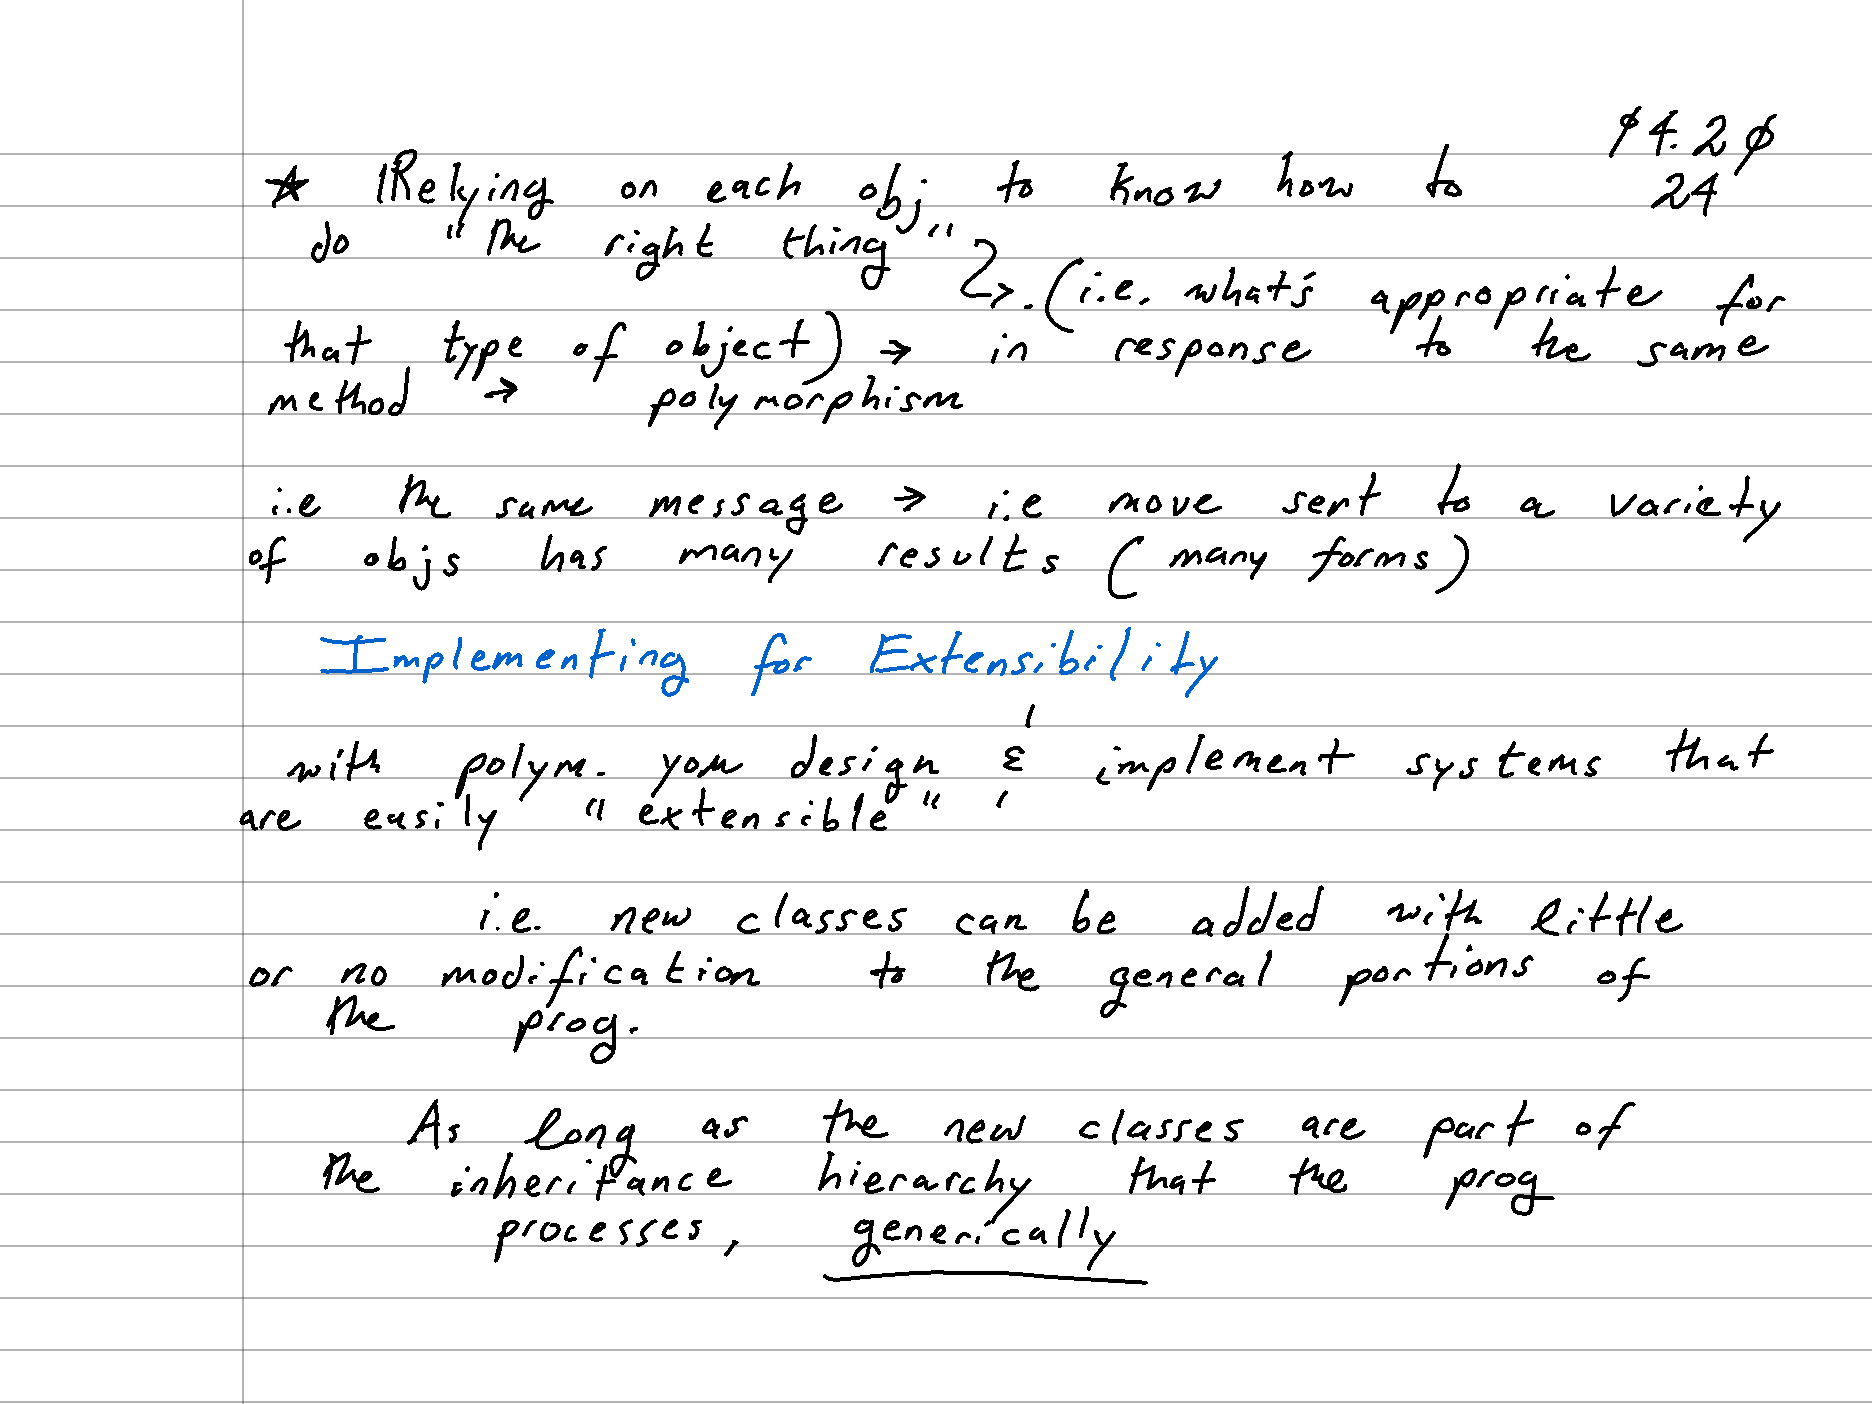 ø4.2ø
24
☆ Relying on each obj to know how to
do "the right thing" ↴.(i.e. what's appropriate for
that type of object) → in response to the same
method → polymorphism
i.e the same message → i.e move sent to a variety
of objs has many results (many forms)
Implementing for Extensibility
with polym. you design & implement systems that
are easily "extensible"
i.e. new classes can be added with little
or no modification to the general portions of
the prog.
As long as the new classes are part of
the inheritance hierarchy that the prog
processes, generically